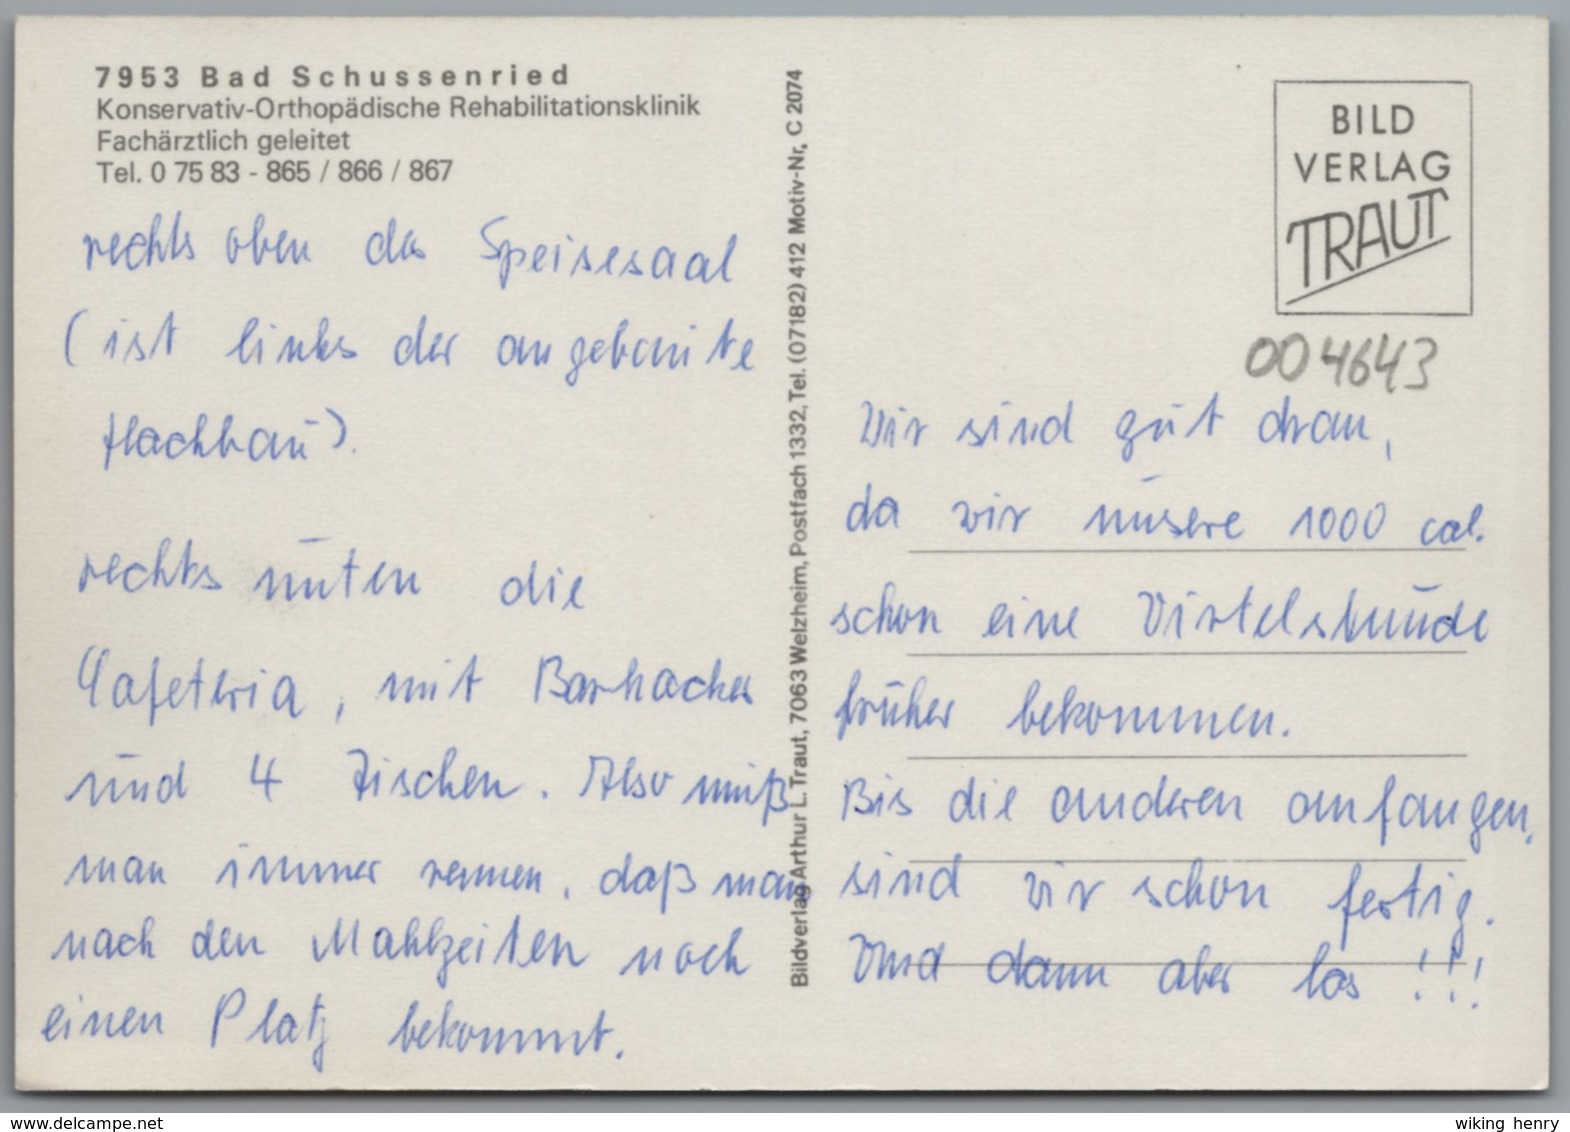 7953 Bad Schussenried
Konservativ-Orthopädische Rehabilitationsklinik
Fachärztlich geleitet
Tel. 0 75 83 - 865 / 866 / 867
rechts oben der Speisesaal
(ist links der angebaute
Flachbau).
rechts unten die
Cafeteria, mit Barhocker
und 4 Tischen. Also muß
man immer rennen, daß man
nach den Mahlzeiten noch
einen Platz bekommt.
Bildverlag Arthur L. Traut, 7063 Welzheim, Postfach 1332, Tel. (07182) 412 Motiv-Nr. C 2074
BILD
VERLAG
TRAUT
004643
Wir sind gut dran,
da wir unsere 1000 cal.
schon eine Virtelstunde
früher bekommen.
Bis die anderen anfangen,
sind wir schon fertig.
Und dann aber los !!!
www.delcampe.net
wiking henry